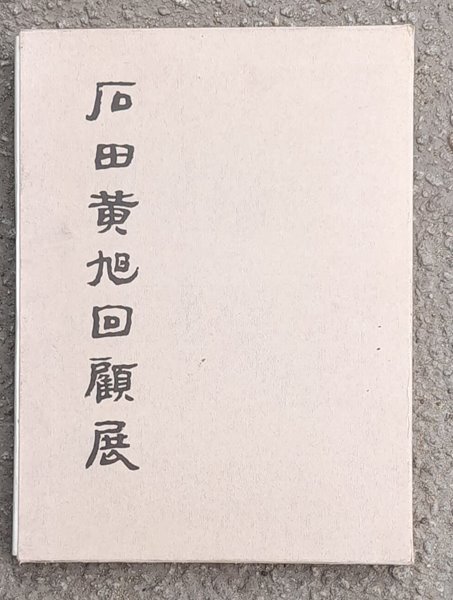 石田黄旭回顧展